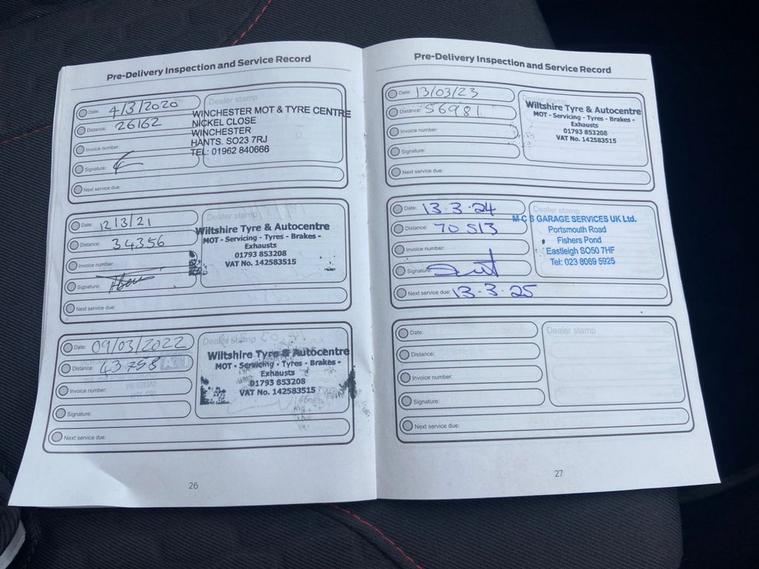 Pre-Delivery Inspection and Service Record
Date: 4/3/2020
Dealer stamp
Distance: 26162
WINCHESTER MOT & TYRE CENTRE
NICKEL CLOSE
WINCHESTER
HANTS. SO23 7RJ
TEL: 01962 840666
Invoice number:
Signature:
Next service due:
Date: 12/3/21
Dealer stamp
Distance: 34356
Wiltshire Tyre & Autocentre
MOT - Servicing - Tyres - Brakes -
Exhausts
01793 853208
VAT No. 142583515
Invoice number:
Signature:
Next service due:
Date: 09/03/2022
Dealer stamp
Distance: 43755
Wiltshire Tyre & Autocentre
MOT - Servicing - Tyres - Brakes -
Exhausts
01793 853208
VAT No. 142583515
Invoice number:
Signature:
Next service due:
26
Pre-Delivery Inspection and Service Record
Date: 13/03/23
Dealer stamp
Distance: 56981
Wiltshire Tyre & Autocentre
MOT - Servicing - Tyres - Brakes -
Exhausts
01793 853208
VAT No. 142583515
Invoice number:
Signature:
Next service due:
Date: 13.3.24
Dealer stamp
Distance: 70513
GARAGE SERVICES UK Ltd.
Portsmouth Road
Fishers Pond
Eastleigh SO50 7HF
Tel: 023 8069 5925
Invoice number:
Signature:
Next service due: 13.3.25
Date:
Dealer stamp
Distance:
Invoice number:
Signature:
Next service due:
27